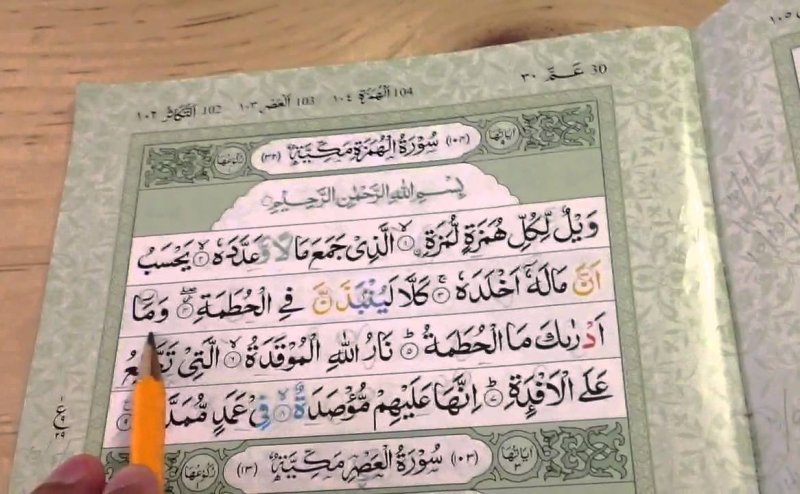 30 عَمَّ ٣٠
104 اَلْهُمَزَةِ ١٠٤ 103 اَلْعَصْرِ ١٠٣ 102 اَلتَّكَاثُرِ ١٠٢
اٰيَاتُهَا (١٠٤) سُوْرَةُ الْهُمَزَةِ مَكِّيَّةٌ (٣٢) رُكُوْعُهَا
بِسْمِ اللهِ الرَّحْمٰنِ الرَّحِيْمِ
وَيْلٌ لِّكُلِّ هُمَزَةٍ لُّمَزَةِ ۙ﴿١﴾ الَّذِىْ جَمَعَ مَالًا وَّ عَدَّدَهٗ ۙ﴿٢﴾ يَحْسَبُ
اَنَّ مَالَهٗۤ اَخْلَدَهٗ ۚ﴿٣﴾ كَلَّا لَيُنْۢبَذَنَّ فِى الْحُطَمَةِ ۖ﴿٤﴾ وَمَاۤ
اَدْرٰىكَ مَا الْحُطَمَةُ ؕ﴿٥﴾ نَارُ اللهِ الْمُوْقَدَةُ ۙ﴿٦﴾ الَّتِىْ
عَلَى الْاَفْـِٕدَةِ ؕ﴿٧﴾ اِنَّهَا عَلَيْهِمْ مُّؤْصَدَةٌ ۙ﴿٨﴾ فِىْ عَمَدٍ
اٰيَاتُهَا ٣ (١٠٣) سُوْرَةُ الْعَصْرِ مَكِّيَّةٌ (١٣) رُكُوْعُهَا